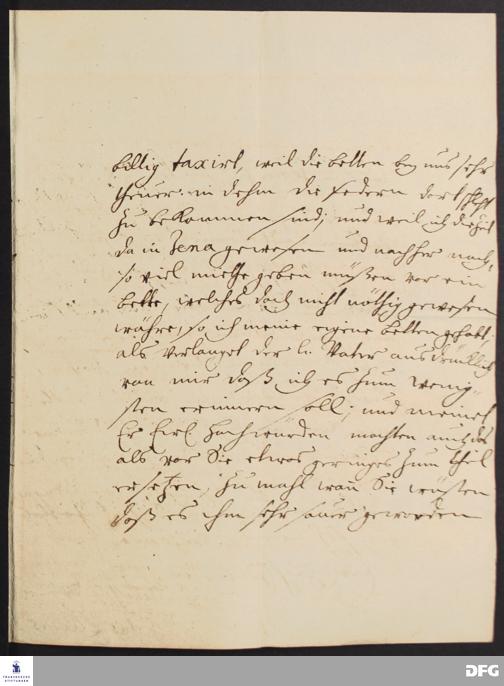 billig taxirt, weil die betten bey uns sehr
theuer. in dehm die federn dort schlecht
zu bekommen sind; und weil ich die Zeit
da in Jena gewesen und nachher noch,
so viel miethe geben müßen vor ein
bette, welches doch nicht nöthig gewesen
währe, so ich meine eigene betten gehabt.
als verlanget der l. Vater ausdrüklich
von mir daß ich es zum wenig-
sten erinnern soll; und meinet
Er Ew. Hochwürden mochten auch das
als vor Sie etwas geringes zum theil
ersetzen, zu mahl wan Sie wüsten
daß es ihm sehr sauer geworden
FRANCKESCHE
STIFTUNGEN
DFG